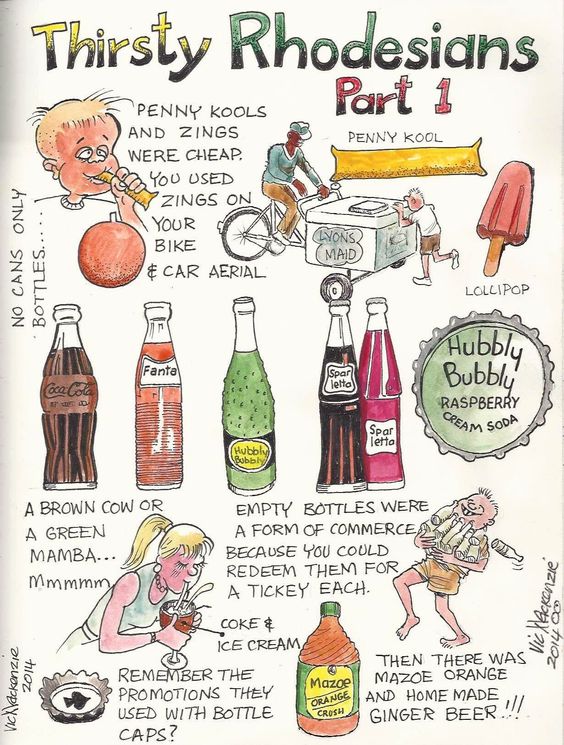 Thirsty Rhodesians
Part 1
PENNY KOOLS
AND ZINGS
WERE CHEAP.
YOU USED
ZINGS ON
YOUR
BIKE
& CAR AERIAL
NO CANS ONLY
BOTTLES.....
PENNY KOOL
LYONS
MAID
LOLLIPOP
Coca-Cola
Fanta
Hubbly
Bubbly
Spar
letta
Spar
letta
Hubbly
Bubbly
RASPBERRY
CREAM SODA
A BROWN COW OR
A GREEN
MAMBA...
Mmmmmm
COKE &
ICE CREAM
EMPTY BOTTLES WERE
A FORM OF COMMERCE
BECAUSE YOU COULD
REDEEM THEM FOR
A TICKEY EACH.
Vic Mackenzie
2014
REMEMBER THE
PROMOTIONS THEY
USED WITH BOTTLE
CAPS?
Mazoe
ORANGE
CRUSH
THEN THERE WAS
MAZOE ORANGE
AND HOME MADE
GINGER BEER...!!!
Vic Mackenzie
2014